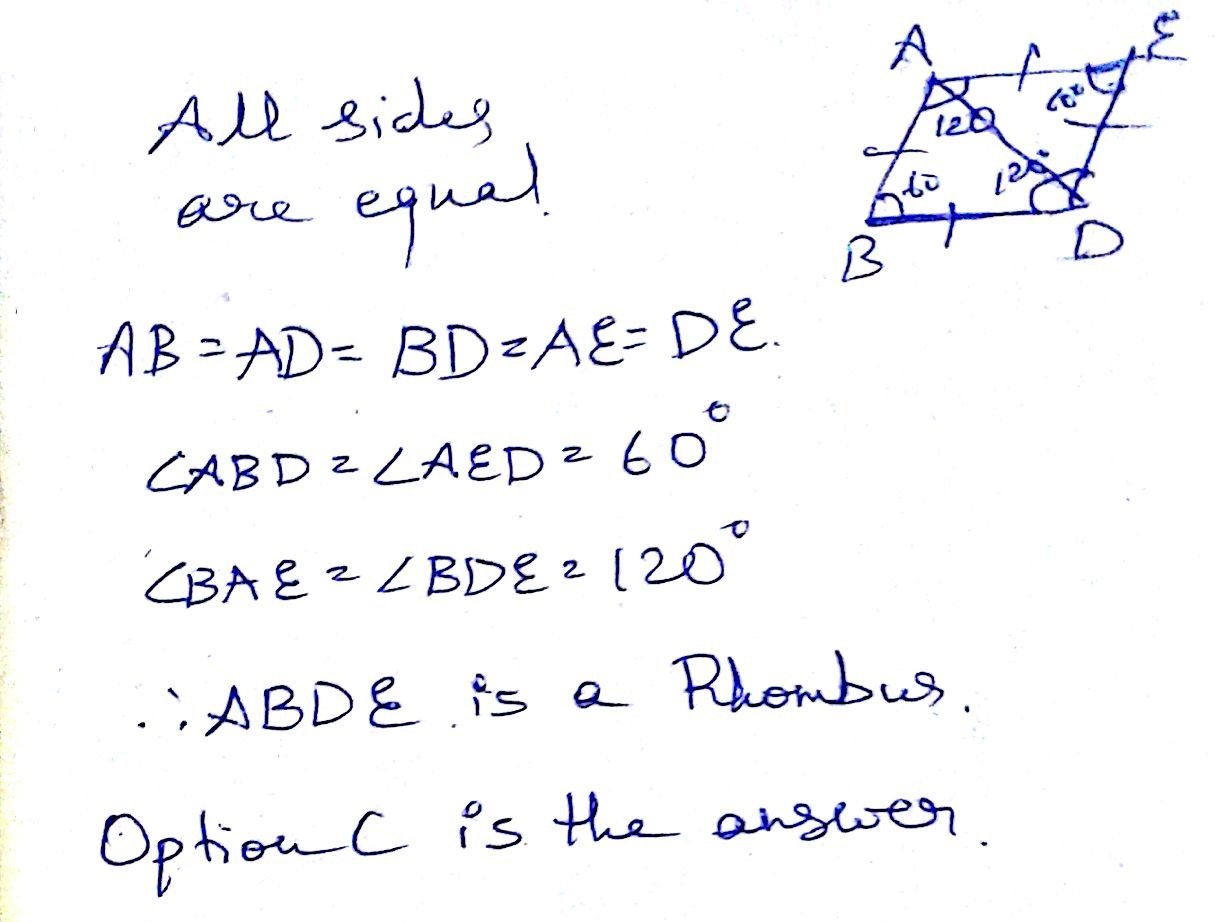 A E
120 60°
60 120°
B D
All sides
are equal.
AB = AD = BD = AE = DE.
∠ABD = ∠AED = 60°
∠BAE = ∠BDE = 120°
∴ ABDE is a Rhombus.
Option C is the answer.